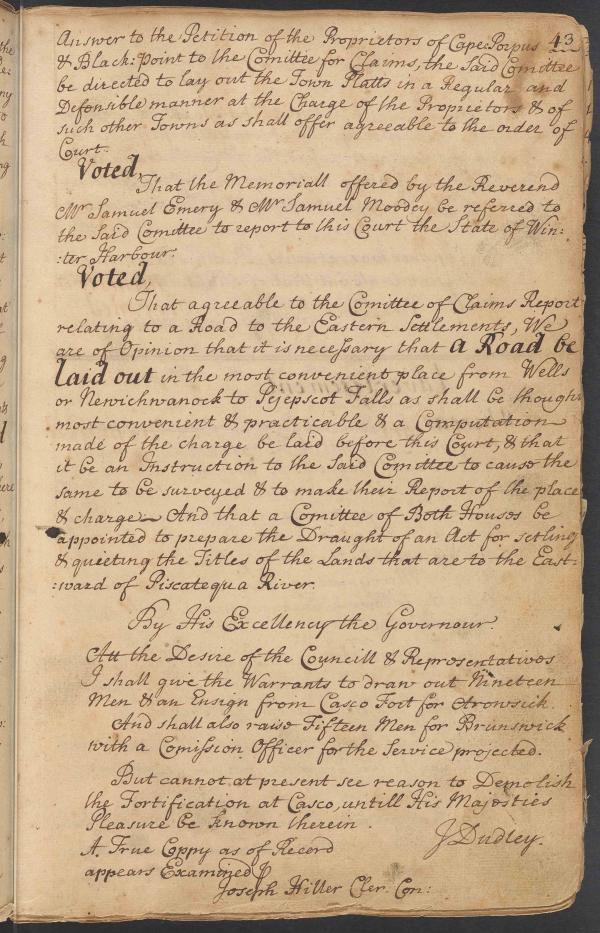 43
Answer to the Petition of the Proprietors of Cape: Porpus
& Black: Point to the Comittee for Claims, the Said Comittee
be directed to lay out the Town Platts in a Regular and
Defensible manner at the Charge of the Proprietors & of
such other Towns as shall offer agreeable to the order of
Court.
Voted,
That the Memoriall offered by the Reverend
Mr Samuel Emery & Mr Samuel Moodey be referred to
the Said Comittee to report to this Court the State of Win:
:ter Harbour.
Voted,
That agreeable to the Comittee of Claims Report
relating to a Road to the Eastern Settlements, We
are of Opinion that it is necessary that a Road be
laid out in the most convenient place from Wells
or Newichwanock to Pejepscot Falls as shall be though
most convenient & practicable & a Computation
made of the charge be laid before this Court, & that
it be an Instruction to the Said Comittee to cause the
same to be surveyed & to make their Report of the place
& charge — And that a Comittee of Both Houses be
appointed to prepare the Draught of an Act for setling
& quieting the Titles of the Lands that are to the East:
:ward of Piscatequa River.
By His Excellency the Governour.
Att the Desire of the Councill & Representatives
I shall give the Warrants to draw out Nineteen
Men & an Ensign from Casco Fort for Arowsick.
And shall also raise Fifteen Men for Brunswick
with a Comission Officer for the Service projected.
But cannot at present see reason to Demolish
the Fortification at Casco, untill His Majesties
Pleasure be known therein.
J Dudley.
A True Coppy as of Record
appears Examined
Joseph Hiller Cler. Con: